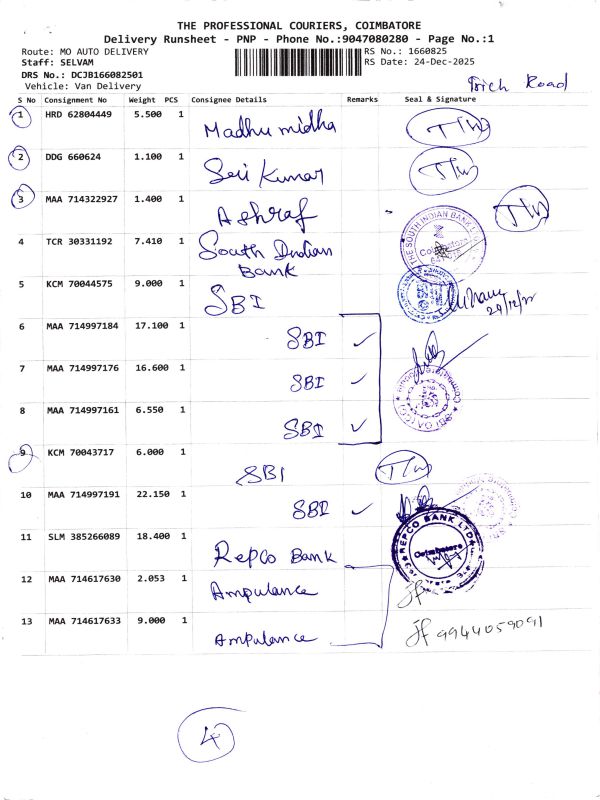 THE PROFESSIONAL COURIERS, COIMBATORE
Delivery Runsheet - PNP - Phone No.:9047080280 - Page No.:1
Route: MO AUTO DELIVERY RS No.: 1660825
Staff: SELVAM RS Date: 24-Dec-2025
DRS No.: DCJB166082501
Vehicle: Van Delivery
Road
S No Consignment No Weight PCS Consignee Details Remarks Seal & Signature
1 HRD 62804449 5.500 1 Madhu midha
2 DDG 660624 1.100 1 Sri Kumar
3 MAA 714322927 1.400 1 Ashraf
4 TCR 30331192 7.410 1 South Indian
Bank
THE SOUTH INDIAN BANK
Coimbatore
5 KCM 70044575 9.000 1 SBI
6 MAA 714997184 17.100 1 SBI ✓
7 MAA 714997176 16.600 1 SBI ✓
8 MAA 714997161 6.550 1 SBI ✓
9 KCM 70043717 6.000 1 SBI
10 MAA 714997191 22.150 1 SBI ✓
11 SLM 385266089 18.400 1 Repco Bank
REPCO BANK LTD
Coimbatore
12 MAA 714617630 2.053 1 Ampulance
13 MAA 714617633 9.000 1 Ampulance 9944059091
4